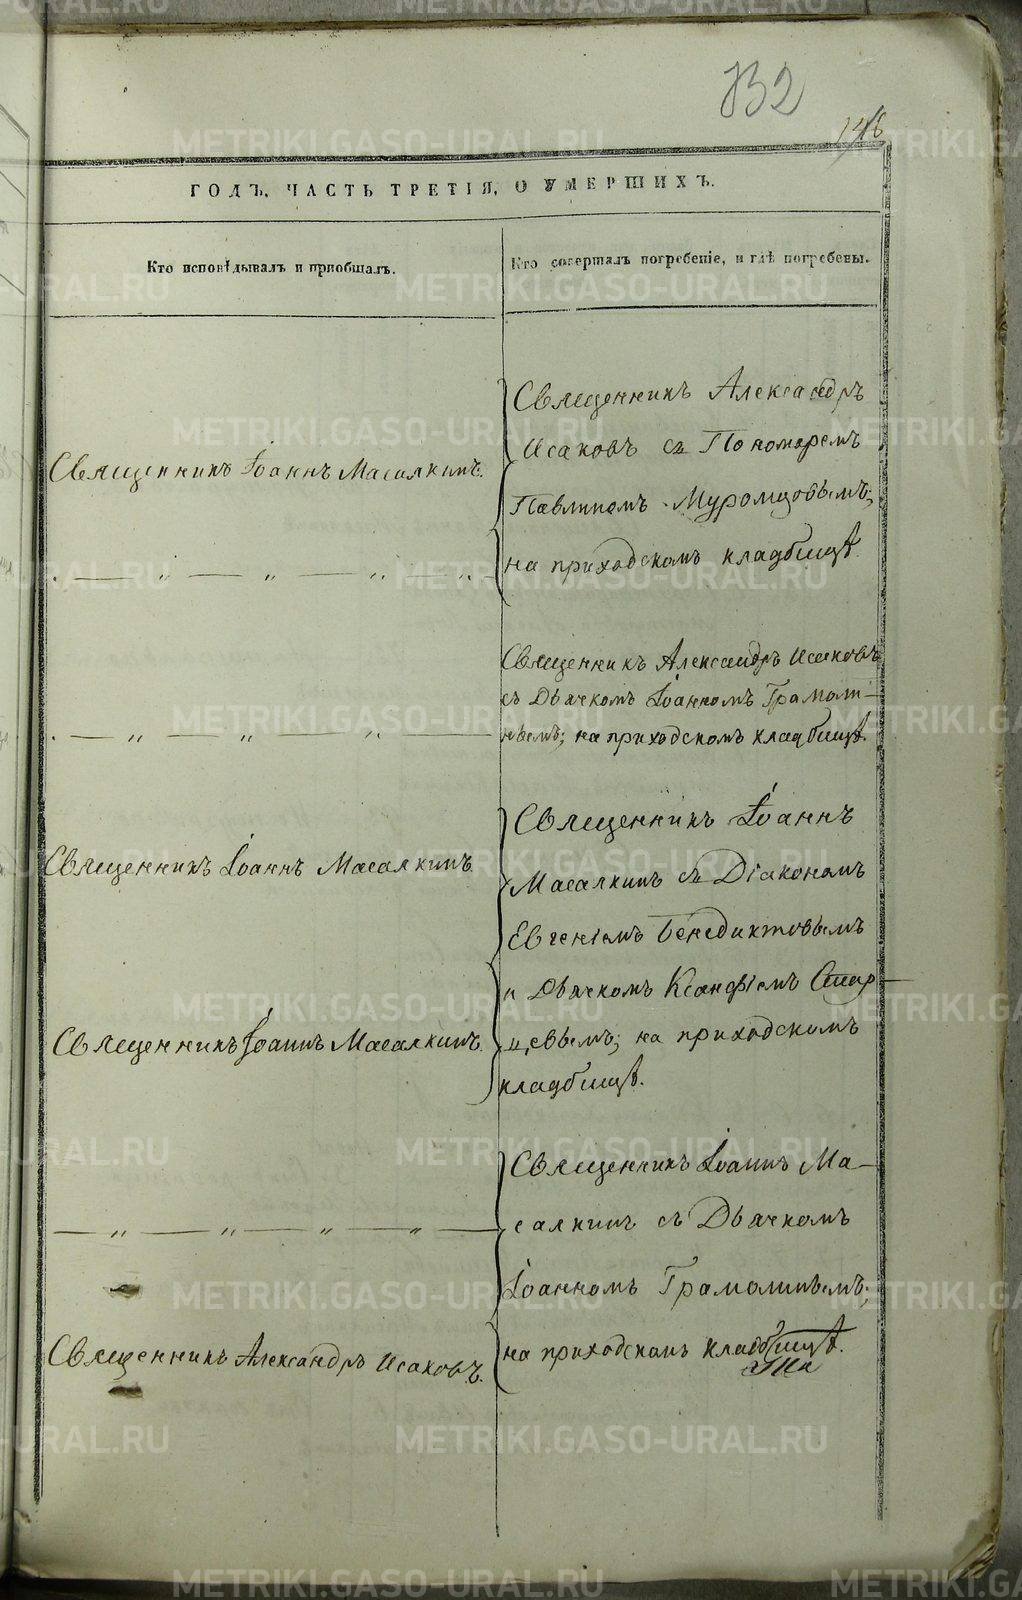 132
146
ГОДЪ, ЧАСТЬ ТРЕТІЯ, О УМЕРШИХЪ.
Кто исповѣдывалъ и приобщалъ.
Кто совершалъ погребеніе, и гдѣ погребены.
Священникъ Іоаннъ Масалкинъ.
„ „ „ „
„ „ „
Священникъ Іоаннъ Масалкинъ
Священникъ Іоаннъ Масалкинъ.
„ „ „ „
Священникъ Александръ Исаковъ.
Священникъ Александръ
Исаковъ съ Пономаремъ
Павлиномъ Муромцовымъ;
на приходскомъ кладбищѣ.
Священникъ Александръ Исаковъ
съ Дьячкомъ Іоанномъ Грамот-
нымъ; на приходскомъ кладбищѣ.
Священникъ Іоаннъ
Масалкинъ съ Діакономъ
Евгеніемъ Бенедиктовымъ
и Дьячкомъ Ксанфіемъ Стар-
цевымъ; на приходскомъ
кладбищѣ.
Священникъ Іоаннъ Ма-
салкинъ съ Дьячкомъ
Іоанномъ Грамотнымъ;
на приходскомъ кладбищѣ.
METRIKI.GASO-URAL.RU